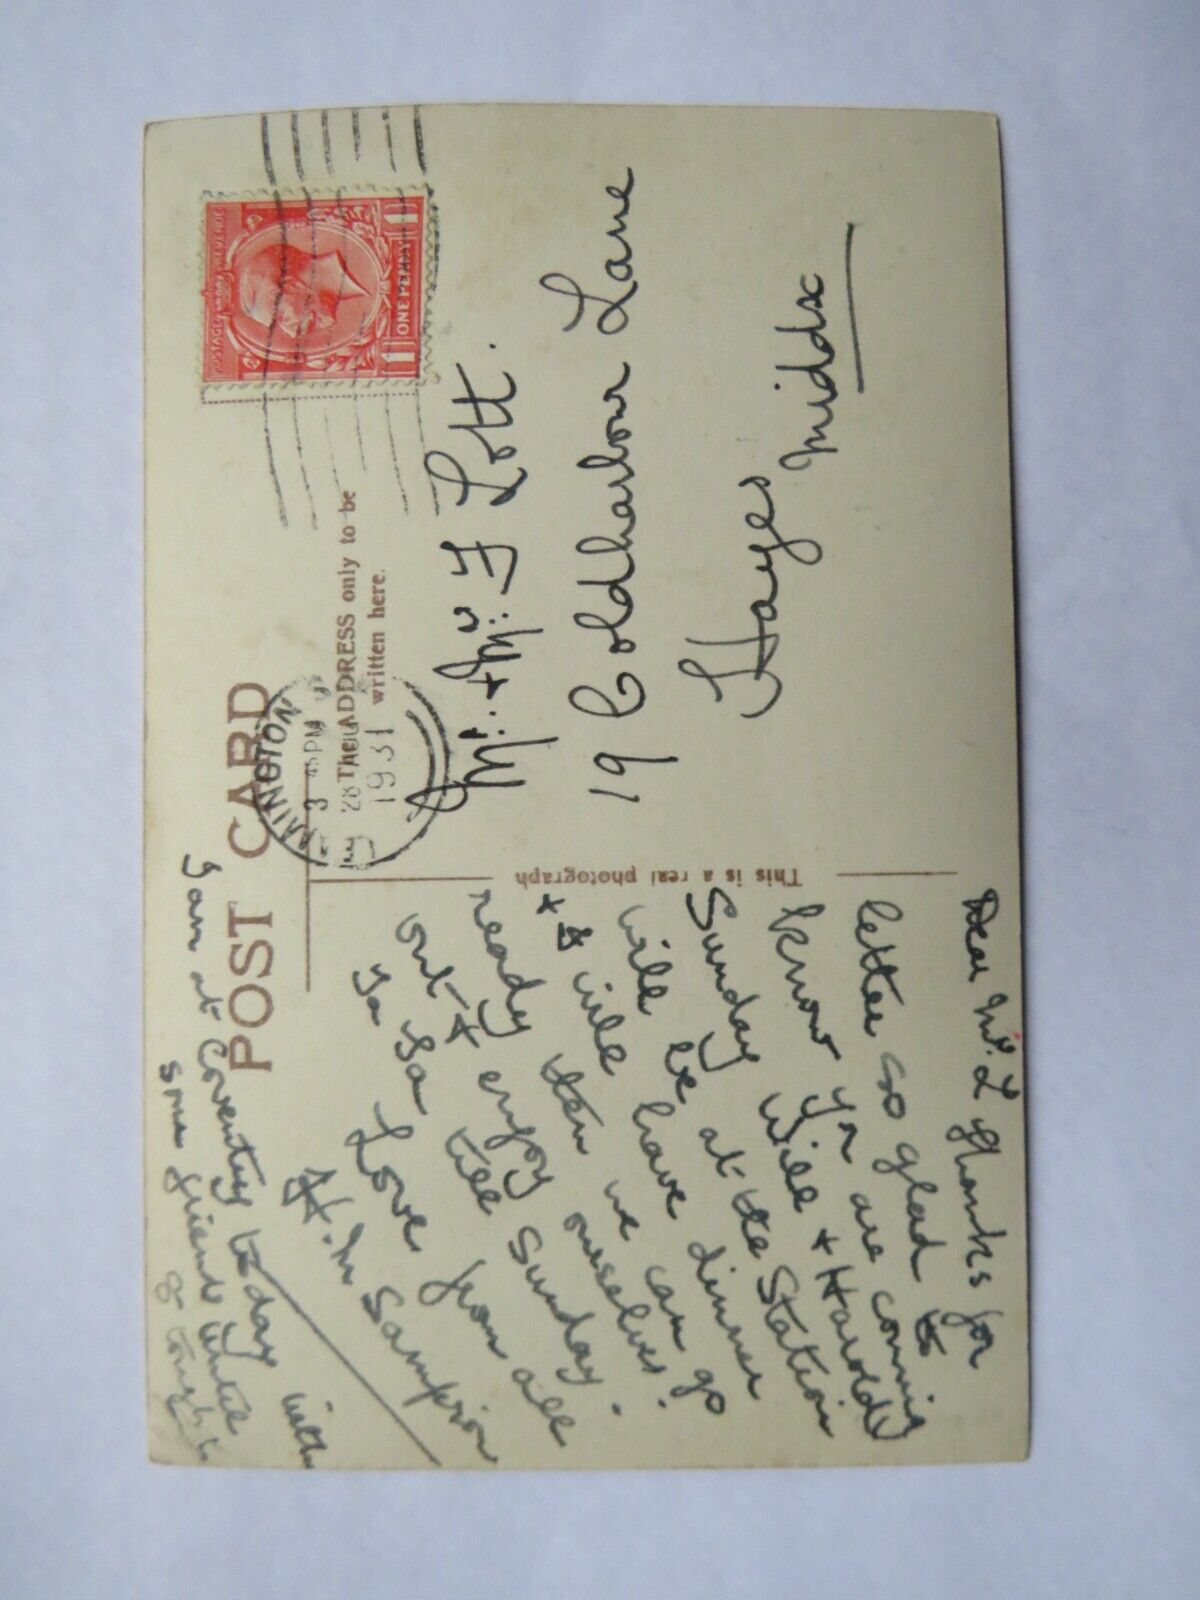 POST CARD
The ADDRESS only to be
written here.
This is a real photograph
3 45 PM
28
1931
POSTAGE REVENUE
1 ONE PENNY 1
Mr. + Mrs. F Lott.
19 Coldharbour Lane
Hayes
Middx
Dear Mrs. L Thanks for
letter so glad to
know you are coming
Sunday Will + Harold
will be at the Station
+ I will have dinner
ready then we can go
out + enjoy ourselves.
Ta Ta till Sunday.
Love from all
H. M. Sampson
I am at Coventry today with
some friends until